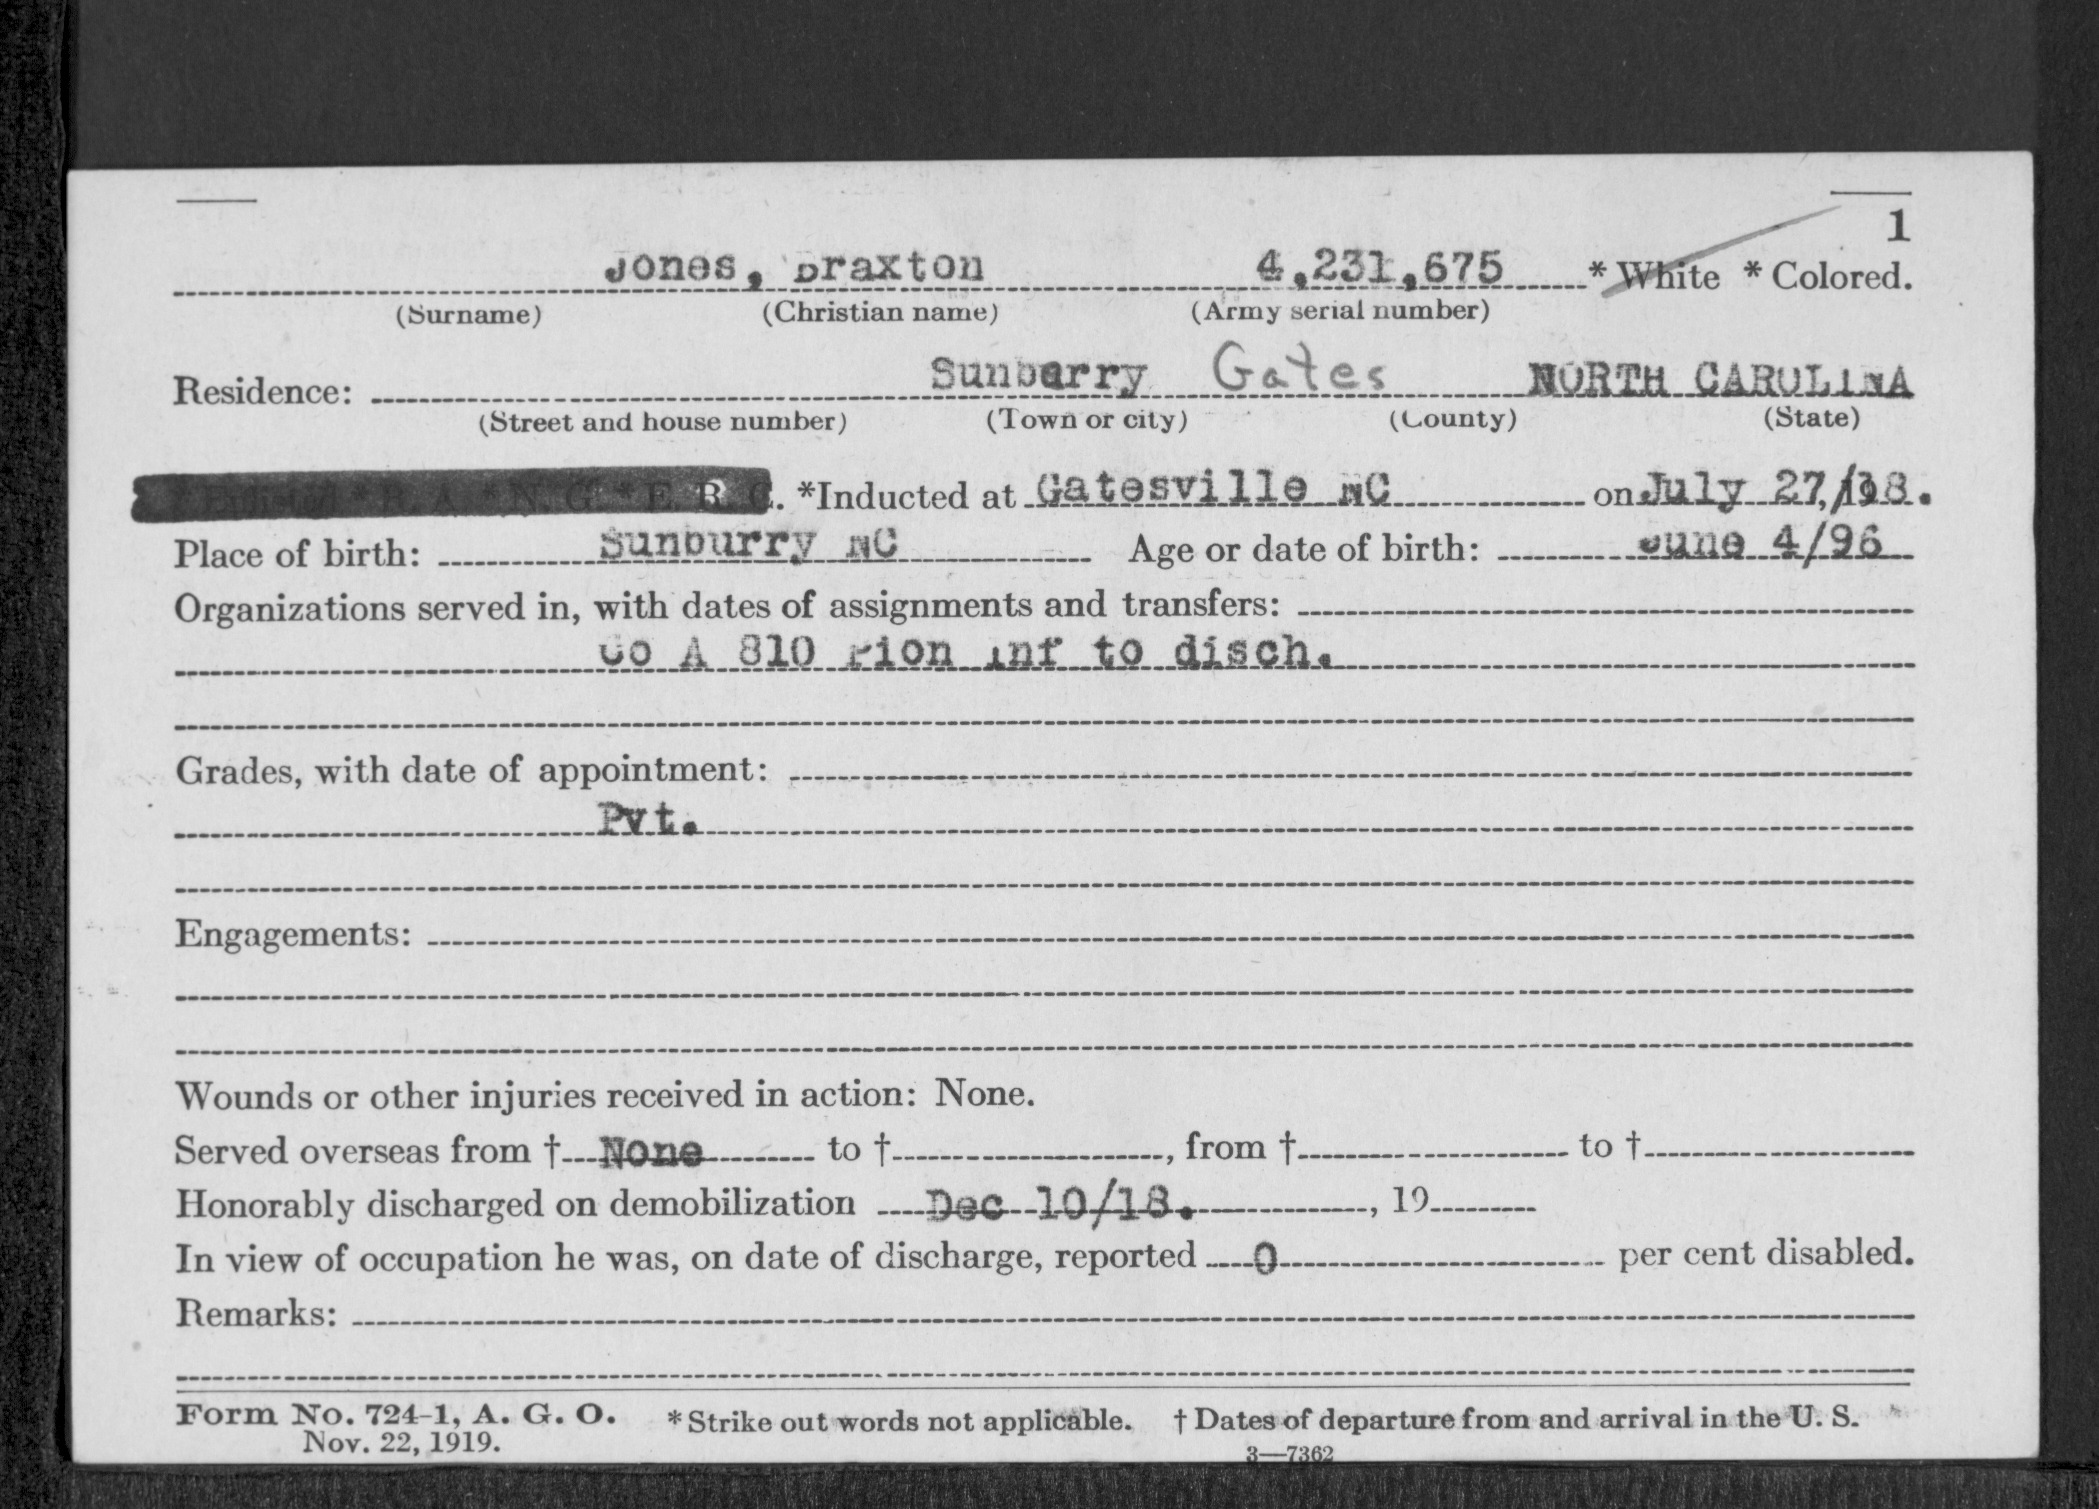 1
Jones, Braxton 4,231,675 * White * Colored.
(Surname) (Christian name) (Army serial number)
Residence: Sunburry Gates NORTH CAROLINA
(Street and house number) (Town or city) (County) (State)
* Enlisted * R. A. * N. G. * E. R. C. *Inducted at Gatesville NC on July 27, /18.
Place of birth: Sunburry NC Age or date of birth: June 4/96
Organizations served in, with dates of assignments and transfers:
Co A 810 Pion Inf to disch.
Grades, with date of appointment:
Pvt.
Engagements:
Wounds or other injuries received in action: None.
Served overseas from † None to †, from † to †
Honorably discharged on demobilization Dec 10/18. , 19
In view of occupation he was, on date of discharge, reported 0 per cent disabled.
Remarks:
Form No. 724-1, A. G. O. * Strike out words not applicable. † Dates of departure from and arrival in the U. S.
Nov. 22, 1919. 3—7362